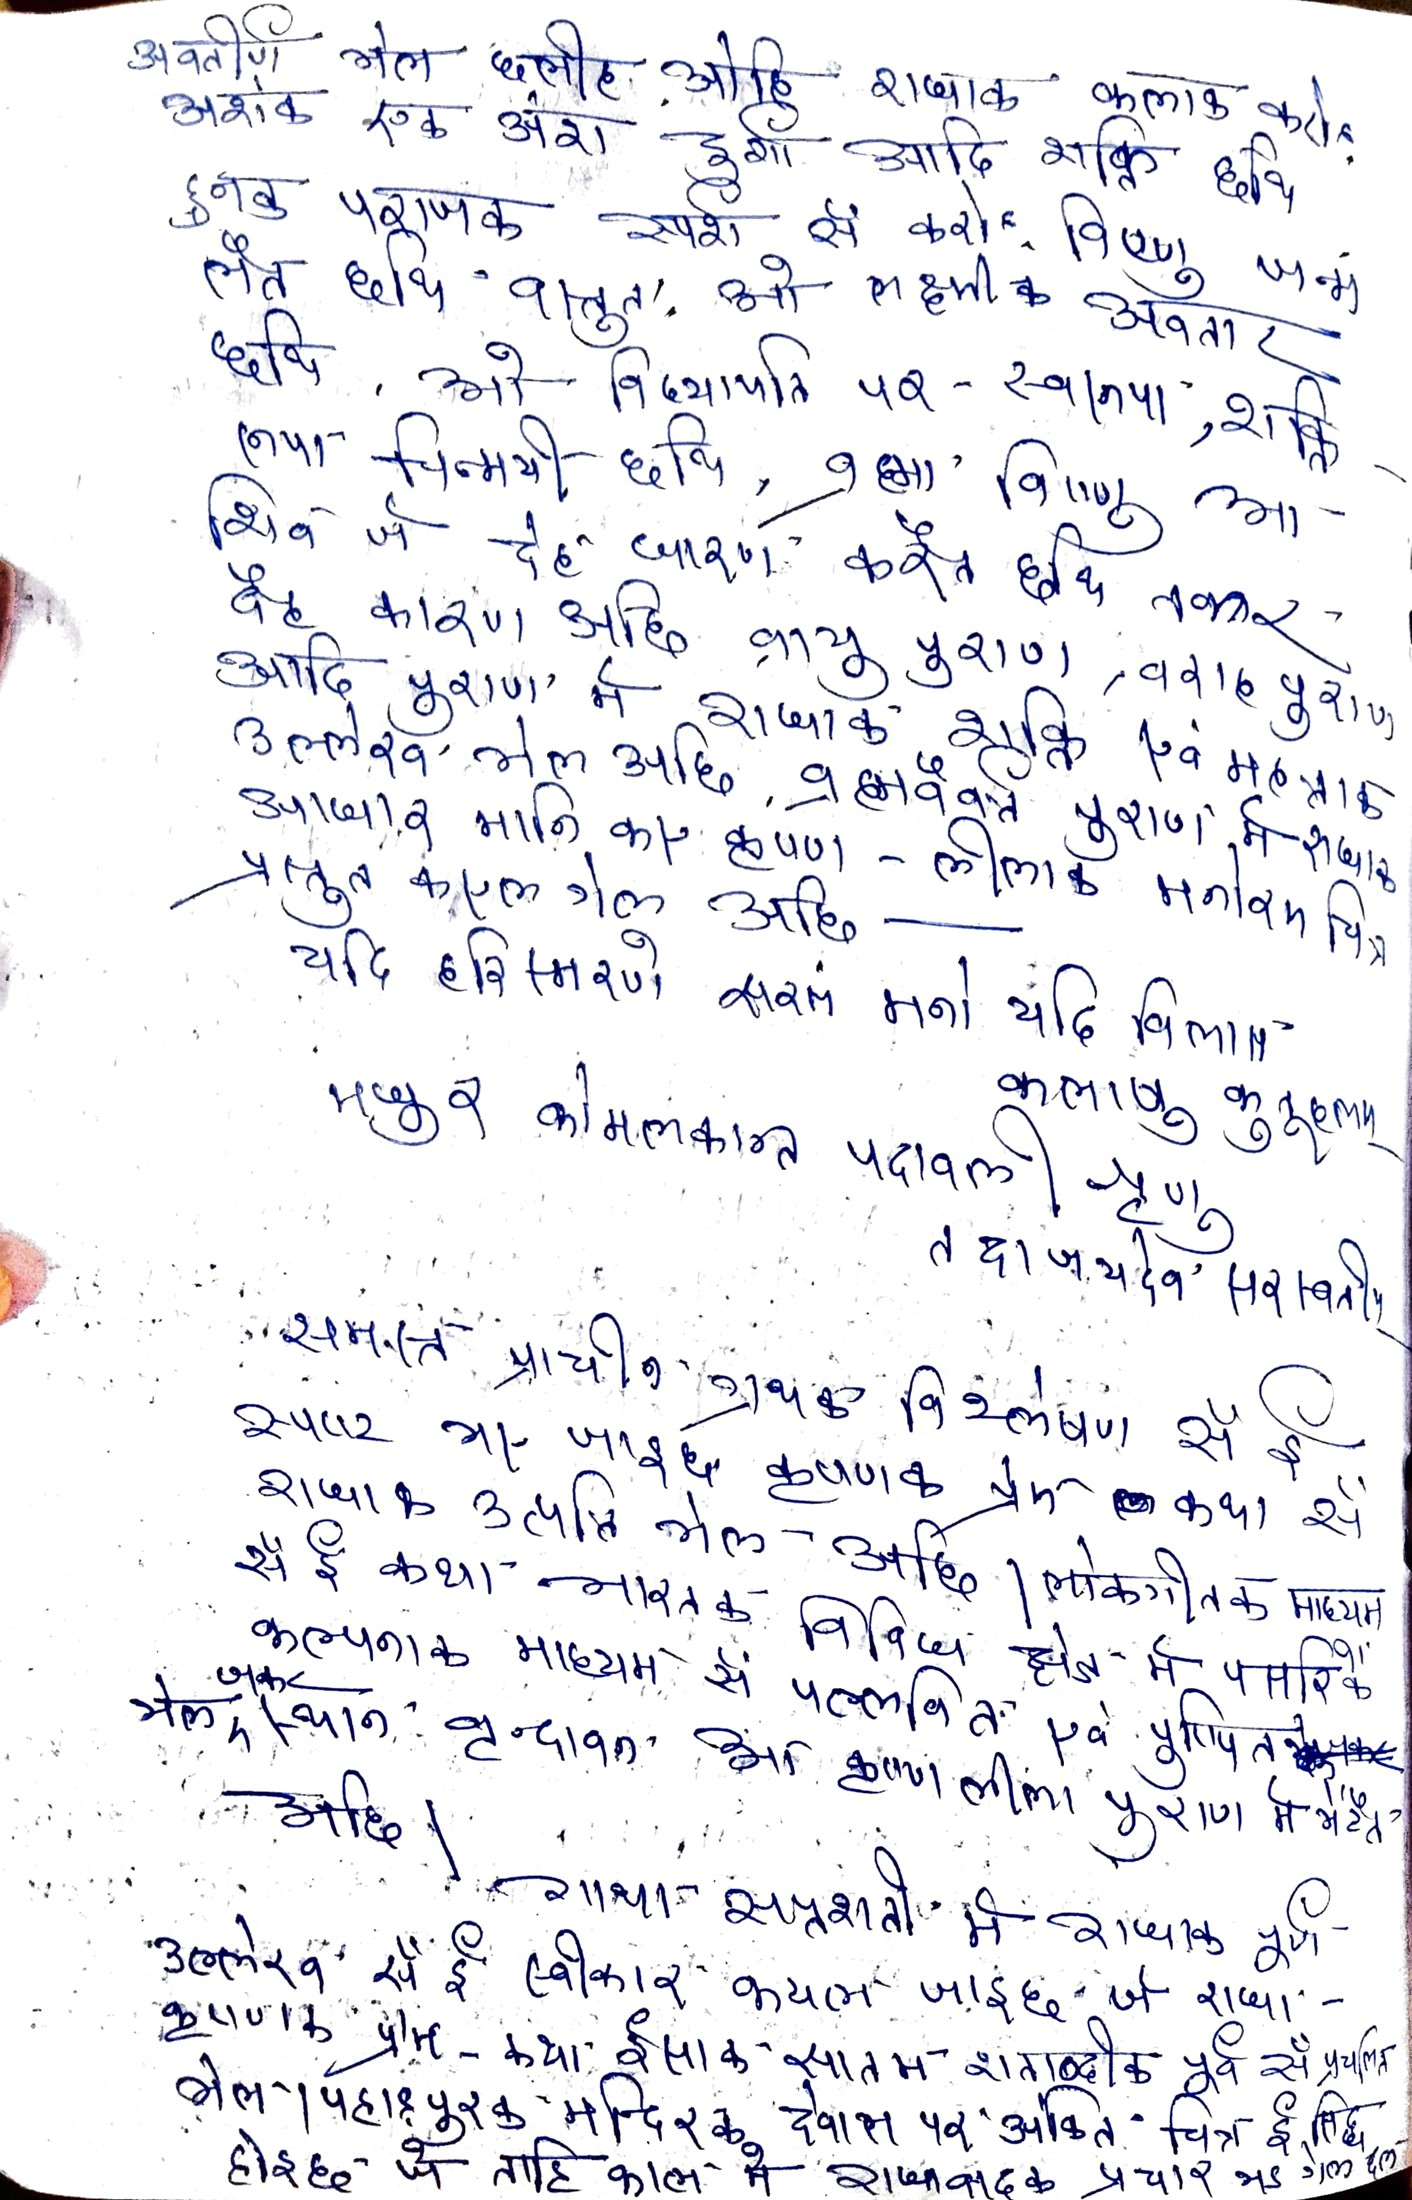 अवतीर्ण भेल छलीह ओहि राधाक कलाक करोड़
अशंक एक अंश दुर्गा आदि शक्ति छथि
हुनक पदरजक स्पर्श सँ करोड़ विष्णु जन्म
लैत छथि वास्तुतः ओ लक्ष्मीक अवतार
छथि, ओ विद्यापति पर - स्वरूपा, शक्ति
रूपा चिन्मयी छथि, ब्रह्मा विष्णु आ
शिव जे देह धारण करैत छथि तकर
देह कारण अछि वायु पुराण, वराह पुराण
आदि पुराण मे राधाक शक्ति एवं महत्ताक
उल्लेख भेल अछि, ब्रह्मवैवर्त्त पुराण मे राधाक
आधार मानि कए कृष्ण - लीलाक मनोरम चित्र
प्रस्तुत कएल गेल अछि —
यदि हरिस्मरणे सरसं मनो यदि विलास
कलासु कुतूहलम्
मधुर कोमलकान्त पदावली श्रृणु
तदा जयदेव सरस्वतीम्
समस्त प्राचीन ग्रंथक विश्लेषण सँ ई
स्पष्ट भए जाइछ कृष्णक प्रेम कथा सँ
राधाक उत्पत्ति भेल अछि। लोकगीतक माध्यम
सँ ई कथा भारतक विविध क्षेत्र मे पसरि कें
कल्पनाक माध्यम सँ पल्लवित एवं पुष्पित
भेल जकर स्थान वृन्दावन आ कृष्ण लीला पुराण मे भेटैत
अछि।
गाथा सप्तशती मे राधाक पूर्ण
उल्लेख सँ ई स्वीकार कयल जाइछ जे राधा -
कृष्णक प्रेम - कथा ईसाक सातम शताब्दीक पूर्व सँ प्रचलित
भेल। पहाड़पुरक मन्दिरक देवाल पर अंकित चित्र ई सिद्ध
होइछ जे ताहि काल मे राधावादक प्रचार भऽ गेल छल